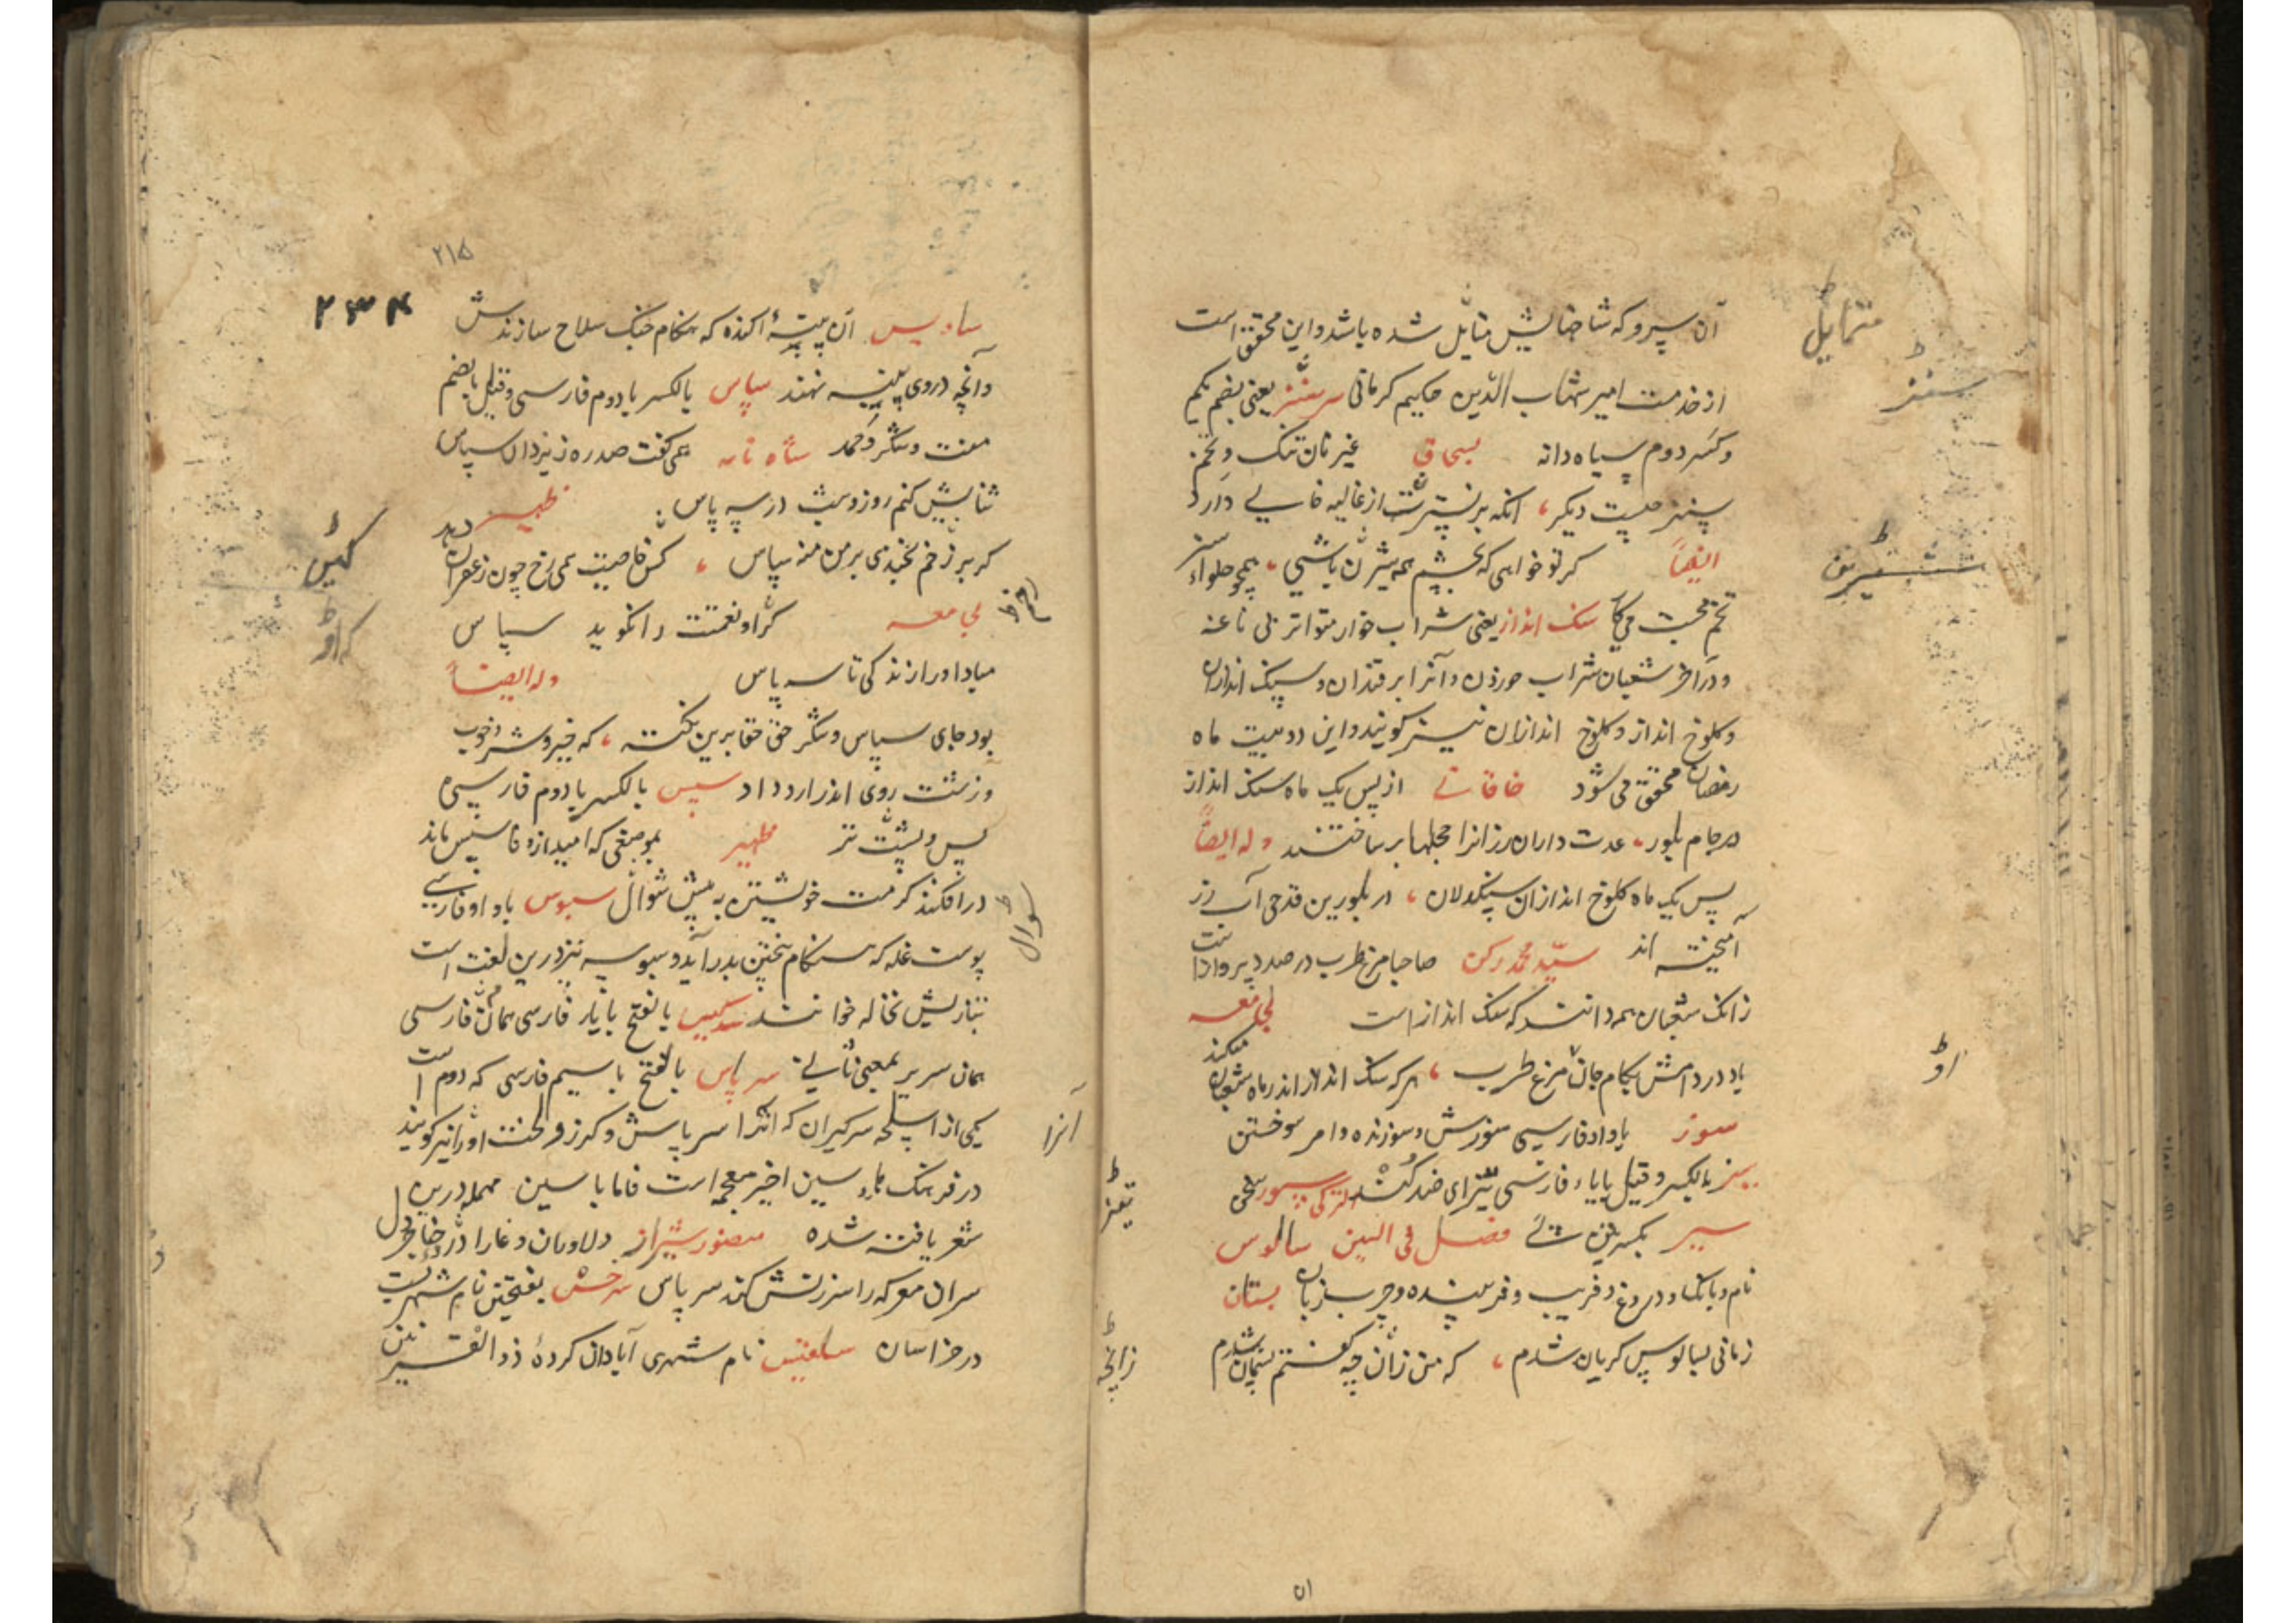 آن سپرو که شاخهایش متایل شده باشد و این محقق است
از خدمت امیر شهاب الدین حکیم کرمانی یعنی بضم یکم
وکسر دوم سیاه دانه بسحاق غیر نان تنک و تخم
چیست دیکر انکه بر از غالیه خالی دارد
ایضاً کر تو خواهی که بچشم همه شیرین باشی همچو حلواء
تخم محبت می کار سنک انداز یعنی شراب خوار متواتر بی ناغه
ودر آخر شعبان شراب خوردن و آنرا برقندان و سنک اندازان
وکلوخ انداز و کلوخ اندازان نیز کویند و این در نسبت ماه
رمضان محقق می شود خاقانی از پس یک ماه سنک انداز
در جام بلور عدت داران رزانرا حجلها بر ساختند وله ایضاً
پس یک ماه کلوخ اندازان سنکدلان در بلورین قدحی آب رز
آمیخته اند سید محمد رکن صاحبا مرغ طرب در صدد پروازست
زانک شعبان همه دانند که سنک انداز است لجامعه
باد در دامش بکام جان مرغ طرب هر که سنک انداز اندر ماه شعبان میکند
سوز باواو فارسی سوزش و سوزنده و امر سوختن
بالکسر وقیل بایاء فارسی تیز ای ضد کند
فصل فی السین سالوس
نام و بانک و دروغ و فریب و فریبنده و چرب زبان بستان
زمانی بسالوس کریان شدم که من زان چه کفتم پشیمان شدم
متمایل
شیرین
او
زانچه
۵۱
۲۱۵
۲۳۴
آن پنبهٔ اکنده که هنکام جنک سلاح سازندش
وآنچه در وی پنبه نهند سپاس بالکسر بادوم فارسی وقیل بالضم
منت و شکر و حمد شاه نامه همی کفت صد ره ز یزدان سپاس
نیایش کنم روز و شب در سه پاس ظهیر
کر بر زخم بخندی بر من منه سپاس کش خاصیت همی رخ چون زعفران دهد
لجامعه کر او نعمتت را نکوید سپاس
مبادا ورا زندکی تا سه پاس وله ایضاً
بود جای سپاس و شکر حق حقا برین نکته که خیر و شر و خوب
و زشت روی اندر ارد داد سپس بالکسر بادوم فارسی
پس و پشت تر ظهیر بموضعی که امید از وفا سپس ماند
در افکند کرمت خویشتن به پیش سوال سبوس باواو فارسی
پوست غله که هنکام پختن بدر آید و سبوسه نیز درین لغت است
بتازیش نخاله خوانند بالفتح بایاء فارسی همان فارسی
همان سریر بمعنی ثانی سر پاس بالفتح باسیم فارسی که دوم است
یکی از اسلحه سرکیران که انرا سر پاش و کرز و لخت او را نیز کویند
در فرهنک سین اخیر معجمه است فاما با سین مهمله درین
شعر یافته شده منصور شیراز دلاوران وغا را در
سران معرکه را سرزنش کند سر پاس سرخس بفتحتین نام شهریست
در خراسان نام شهری آبادان کردهٔ ذو القرنین
کش
کر او
سوال
آنرا